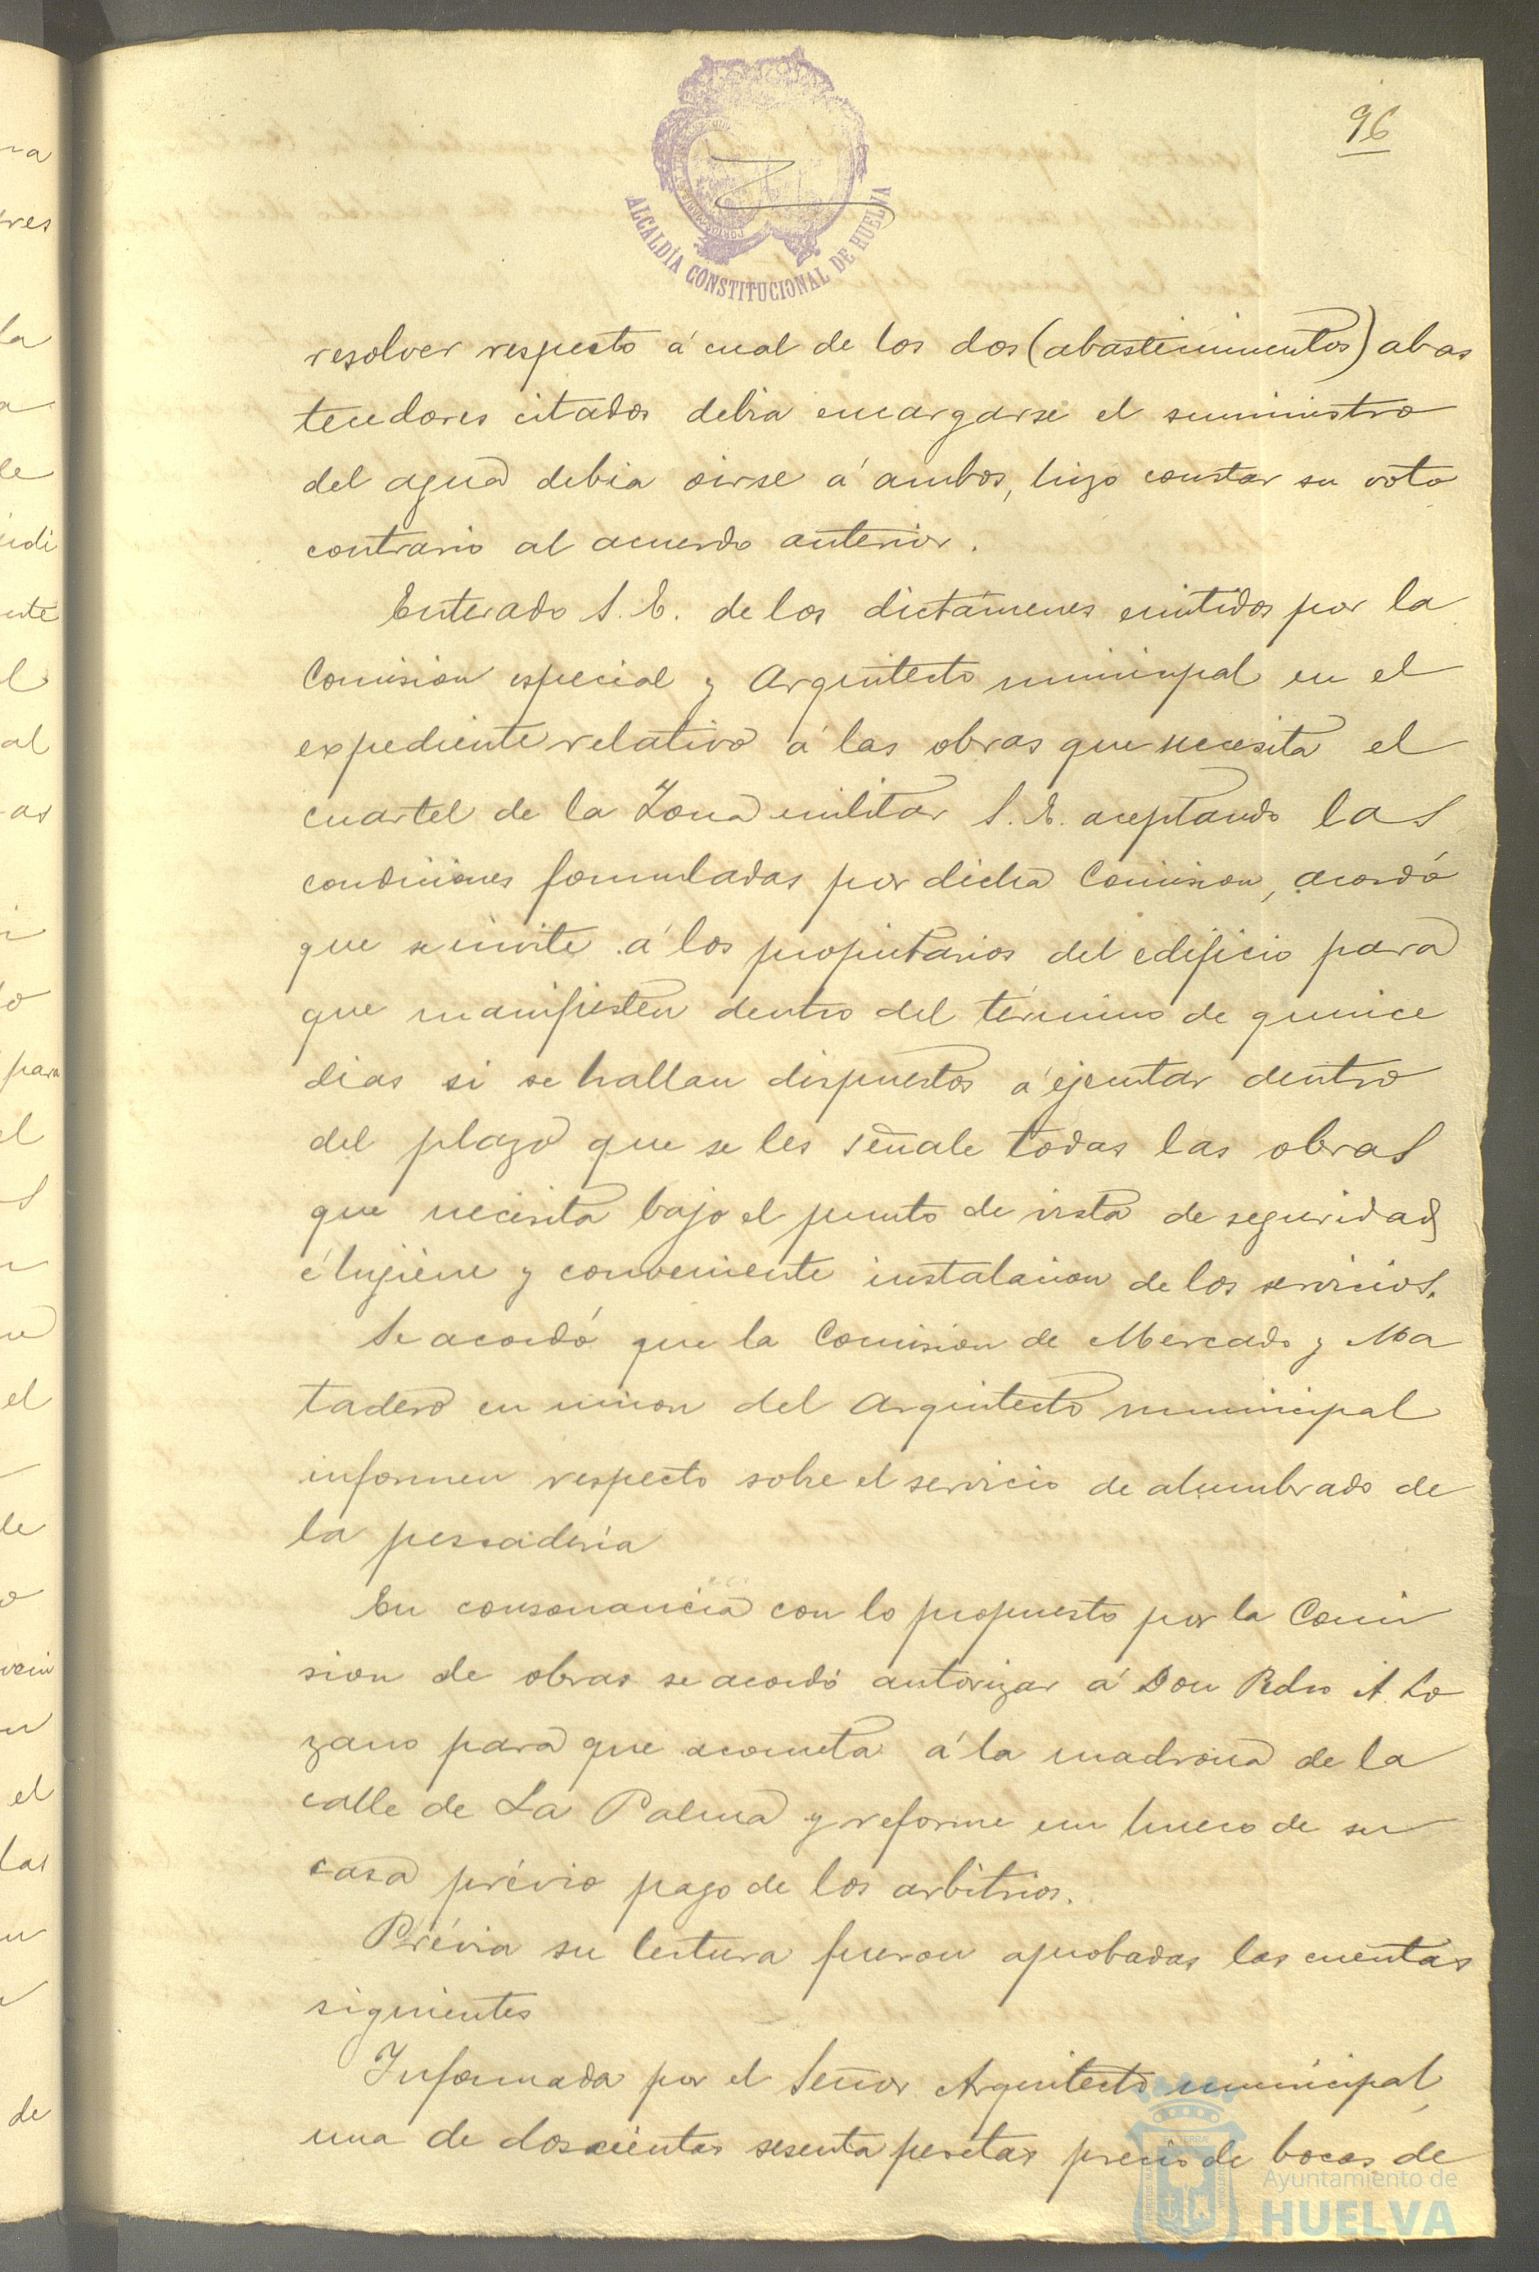 96
ALCALDÍA CONSTITUCIONAL DE HUELVA
resolver respecto á cual de los dos (abastecimientos) abas
tecedores citados debia encargarse el suministro
del agua debia oirse á ambos, hizo constar su voto
contrario al acuerdo anterior.
Enterado S. E. de los dictámenes emitidos por la
Comision especial y Arquitecto municipal en el
expediente relativo á las obras que necesita el
cuartel de la Zona militar S. E. aceptando las
condiciones formuladas por dicha Comision, acordó
que se invite á los propietarios del edificio para
que manifiesten dentro del término de quince
dias si se hallan dispuestos á ejecutar dentro
del plazo que se les señale todas las obras
que necesita bajo el punto de vista de seguridad
é hijiene y conveniente instalacion de los servicios.
Se acordó que la Comision de Mercado y Ma
tadero en union del Arquitecto municipal
informen respecto sobre el servicio de alumbrado de
la pescaderia
En consonancia con lo propuesto por la Comi
sion de obras se acordó autorizar á Don Pedro A. Lo
zano para que acometa á la madrona de la
calle de La Palma y reforme un hueco de su
casa prévio pago de los arbitrios.
Prévia su lectura fueron aprobadas las cuentas
siguientes
Informada por el Señor Arquitecto municipal,
una de doscientas sesenta pesetas precio de bocas de
Ayuntamiento de
HUELVA